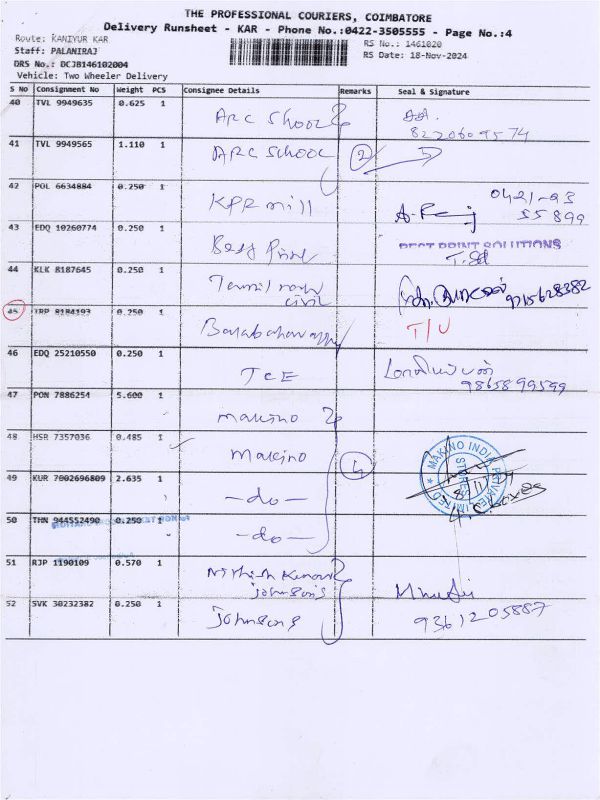 THE PROFESSIONAL COURIERS, COIMBATORE
Delivery Runsheet - KAR - Phone No.:0422-3505555 - Page No.:4
Route: KANIYUR KAR
RS No.: 1461020
Staff: PALANIRAJ
RS Date: 18-Nov-2024
DRS No.: DCJB146102004
Vehicle: Two Wheeler Delivery
S No Consignment No Weight PCS Consignee Details Remarks Seal & Signature
40 TVL 9949635 0.625 1 ARC School
8220609574
41 TVL 9949565 1.110 1 ARC SCHOOL 2
42 POL 6634884 0.250 1 KPR mill
0421-23
55899
43 EDQ 10260774 0.250 1 Best Print BEST PRINT SOLUTIONS
44 KLK 8187645 0.250 1 Tamil nadu civil 9715628382
45 TRP 8184193 0.250 1 T/U
46 EDQ 25210550 0.250 1 TCE
9865899599
47 PON 7886254 5.600 1 makino
48 HSR 7357036 0.485 1 Makino 4
MAKINO INDIA PRIVATE LIMITED
STORES
49 KUR 7002696809 2.635 1 -do-
50 THN 944552490 0.250 1 -do-
51 RJP 1190109 0.570 1 Nithish Kumar
Johnsons
52 SVK 30232382 0.250 1 Johnsons
9361205887